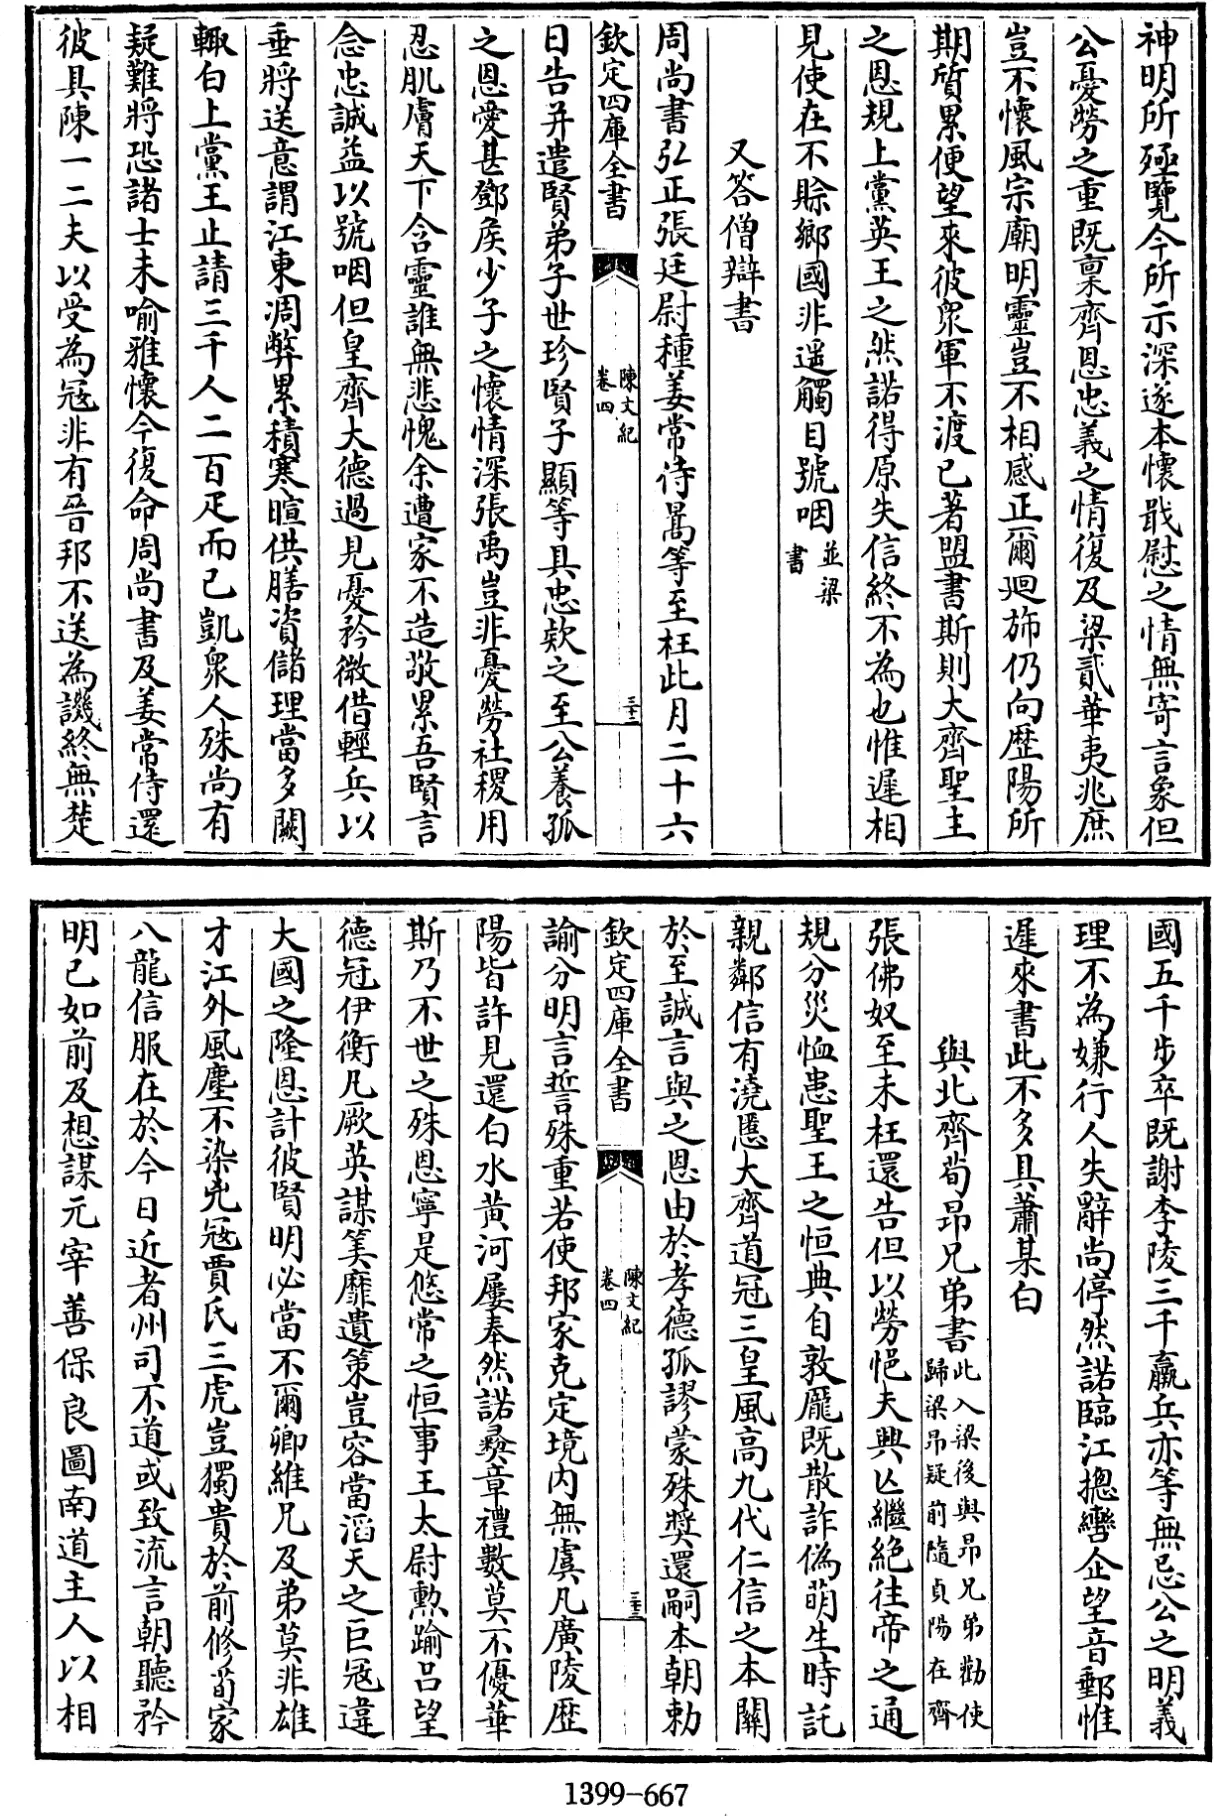 神明所殛覽今所示深遂本懷戢慰之情無寄言象但
公憂勞之重既稟齊恩忠義之情復及梁貳華夷兆庶
豈不懷風宗廟明靈豈不相感正爾迴斾仍向歴陽所
期質累便望來彼衆軍不渡已著盟書斯則大齊聖主
之恩規上黨英王之然諾得原失信終不為也惟遲相
見使在不賒鄉國非遥觸目號咽並梁書
又答僧辯書
周尚書弘正張廷尉種姜常侍暠等至枉此月二十六
欽定四庫全書
陳文紀
卷四
三十二
日告并遣賢弟子世珍賢子顯等具忠欵之至公養孤
之恩愛甚鄧侯少子之懷情深張禹豈非憂勞社稷用
忍肌膚天下含靈誰無悲愧余遭家不造敬累吾賢言
念忠誠益以號咽但皇齊大德過見憂矜微借輕兵以
垂將送意謂江東凋弊累積寒暄供膳資儲理當多闕
輙白上黨王止請三千人二百疋而已凱衆人殊尚有
疑難將恐諸士未喻雅懷今復命周尚書及姜常侍還
彼具陳一二夫以受為冦非有晉邦不送為譏終無楚
國五千步卒既謝李陵三千羸兵亦等無忌公之明義
理不為嫌行人失辭尚停然諾臨江摠轡企望音郵惟
遲來書此不多具蕭某白
與北齊荀昻兄弟書此入梁後與昻兄弟勸使歸梁昻疑前隨貞陽在齊
張佛奴至未枉還告但以勞悒夫興亡繼絶往帝之通
規分災恤患聖王之恒典自敦龎既散詐偽萌生時託
親鄰信有澆慝大齊道冠三皇風高九代仁信之本關
於至誠言與之恩由於孝德孤謬蒙殊奬還嗣本朝勅
欽定四庫全書
陳文紀
卷四
三十三
諭分明言誓殊重若使邦家克定境内無虞凡廣陵歴
陽皆許見還白水黄河屢奉然諾彛章禮數莫不優華
斯乃不世之殊恩寧是悠常之恒事王太尉勲踰吕望
德冠伊衡凡厥英謀筭靡遺策豈容當滔天之巨冦違
大國之隆恩計彼賢明必當不爾卿維兄及弟莫非雄
才江外風塵不染兇冦賈氏三虎豈獨貴於前修荀家
八龍信服在於今日近者州司不道或致流言朝聽矜
明已如前及想謀元宰善保良圖南道主人以相
1399-667